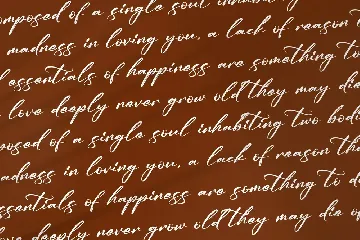 mposed of a single soul inhabiting
madness in loving you, a lack of reason
essentials of happiness are something to
love deeply never grow old they may die
posed of a single soul inhabiting two bodi
adness in loving you, a lack of reason tha
ssentials of happiness are something to d
ve deeply never grow old they may die o